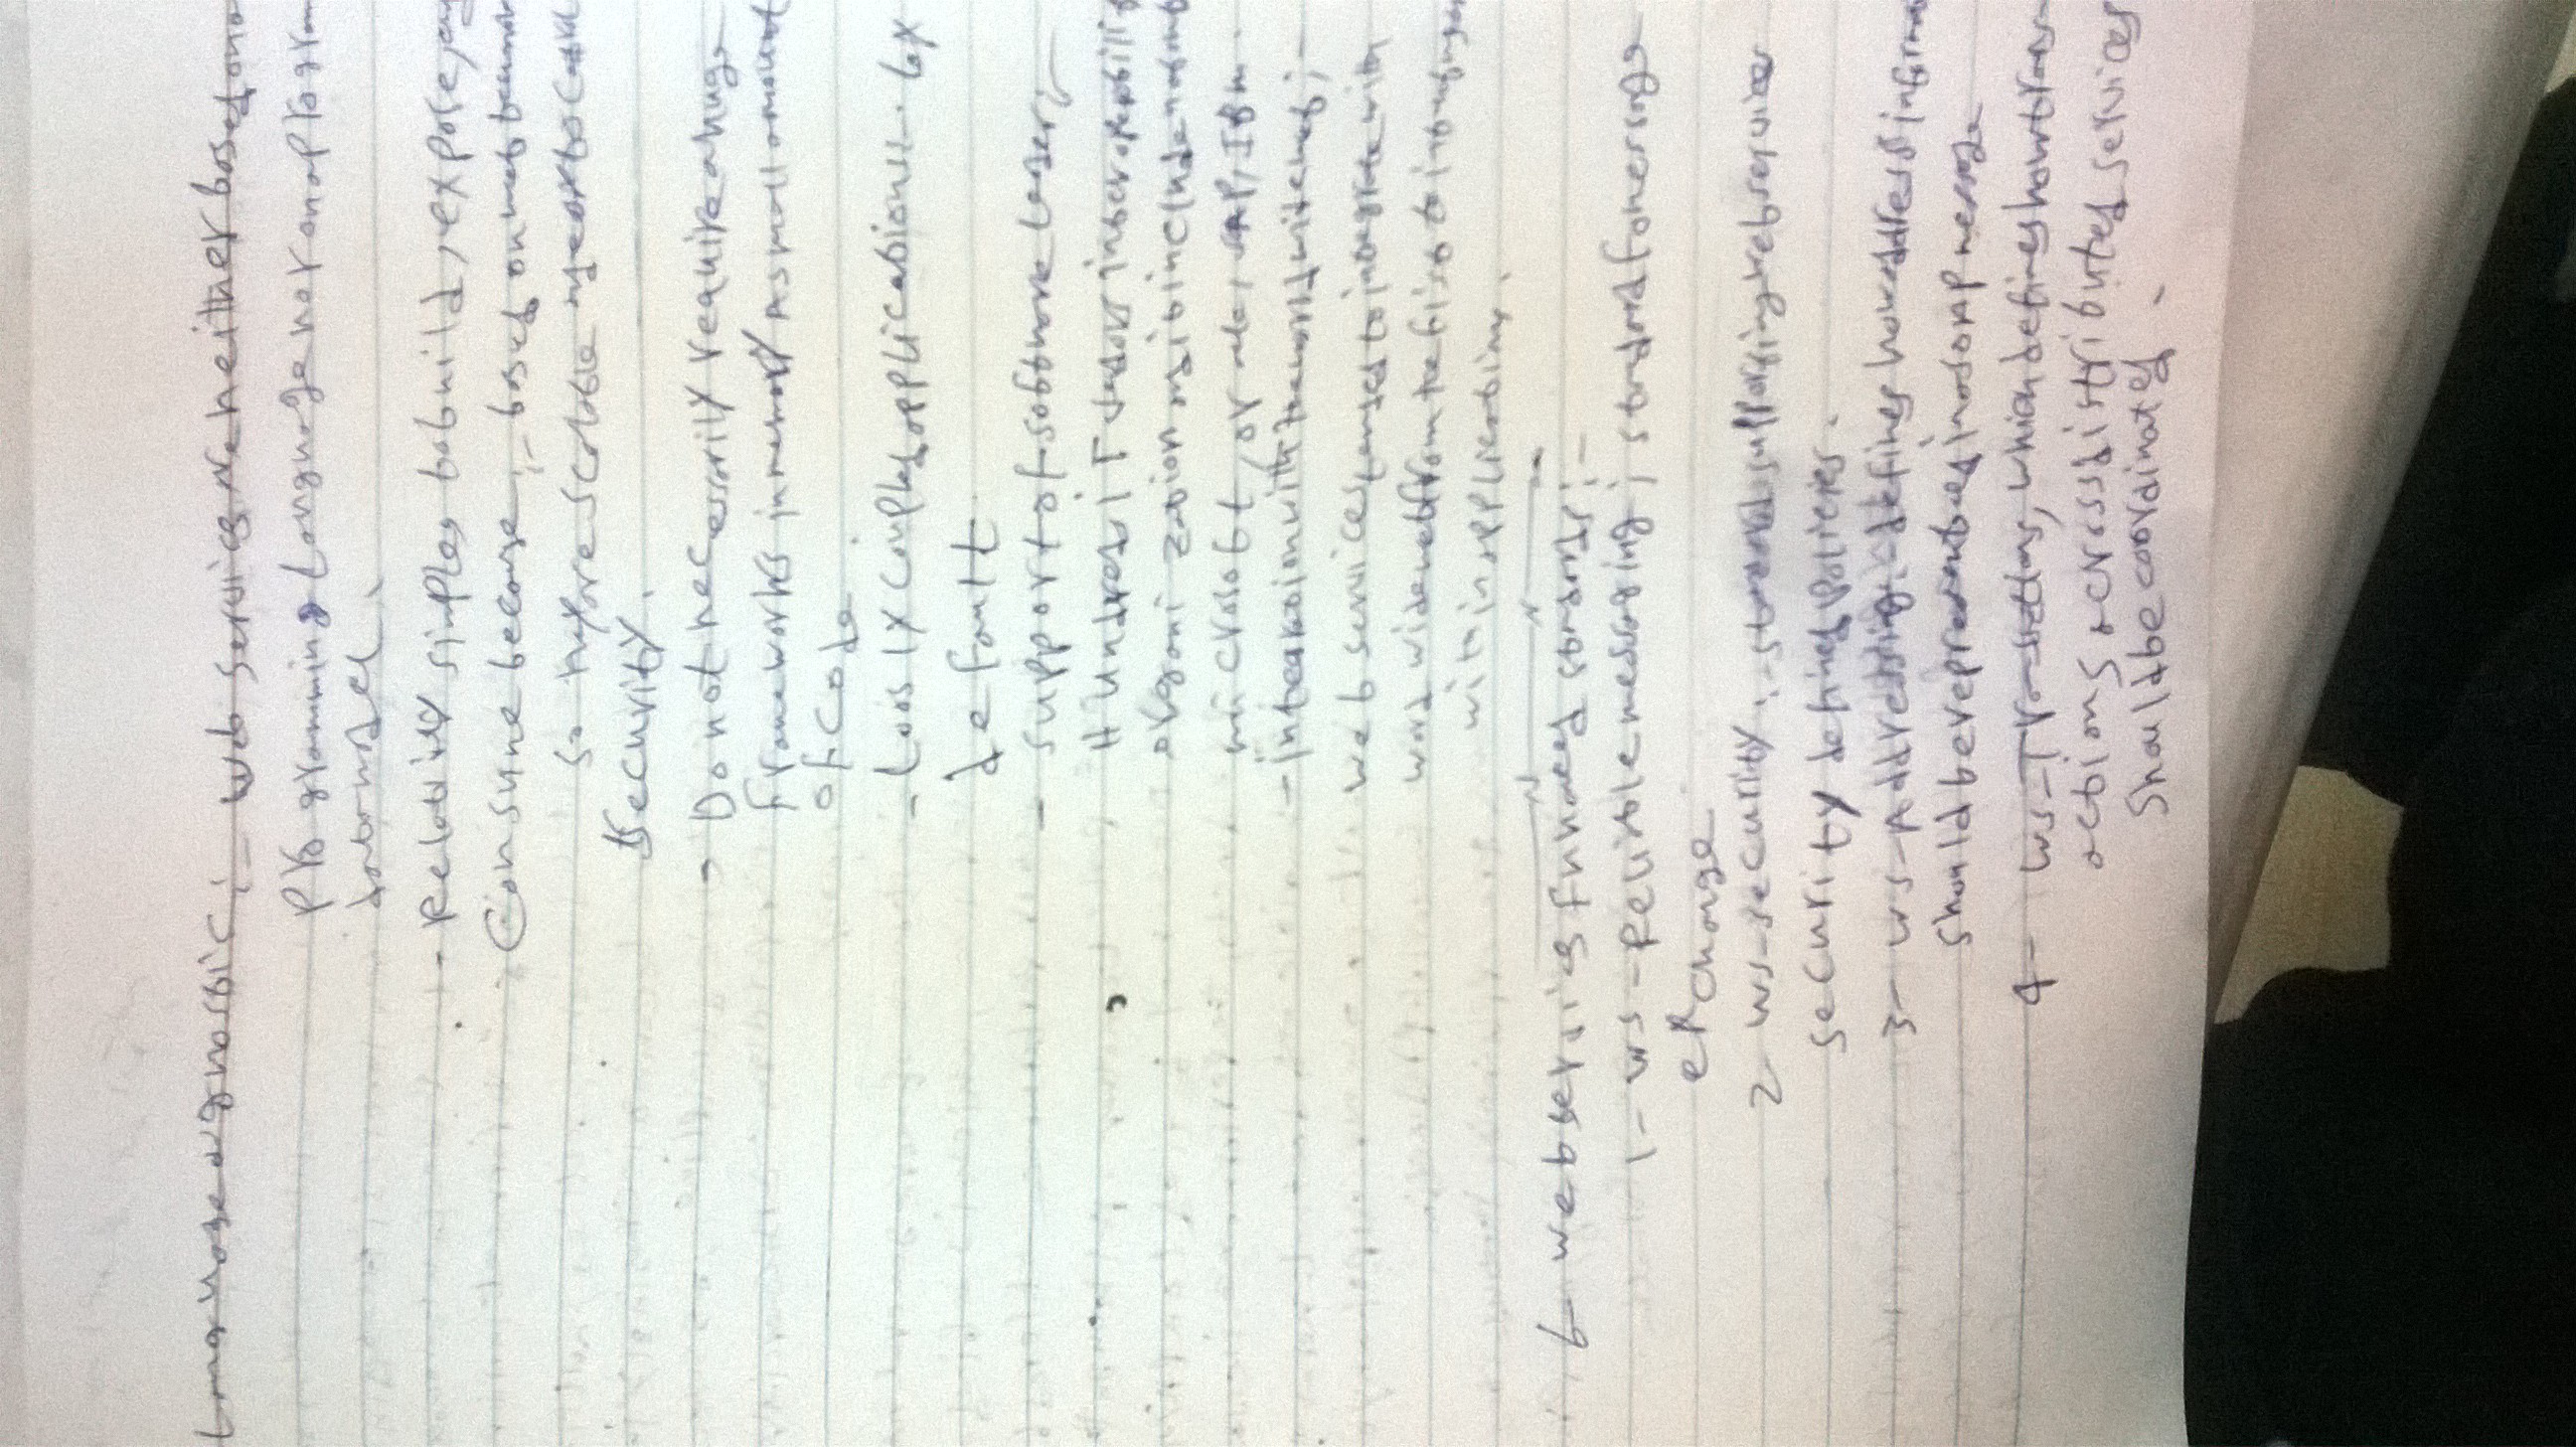 Language agnostic :- web services are neither based on a
programming language nor on a program
data model.
- Relativly simples to build, expose, and
Consume because :- based on web
so they are scalable
Security.
- Do not necessarily require a huge
frameworks in memory A small amount
of code
- Loosly coupled applications :- by
default
- support of software
Hundred IT interoperability
organization and it include
microsoft, oracle, SAP, IBM
- with web :-
web services to integrate with
word wide web from the first to
within applications.
6- web services Enhanced standards :-
1- WS-Reliable messaging ; standard for message
exchange
2- WS-security :- standard supporting web services
security defined policies.
3- WS-Addressing :- defines how address
should be represented in a soap message
4- WS-Transactions, which defines how trans-
actions across distributed services
should be coordinated.